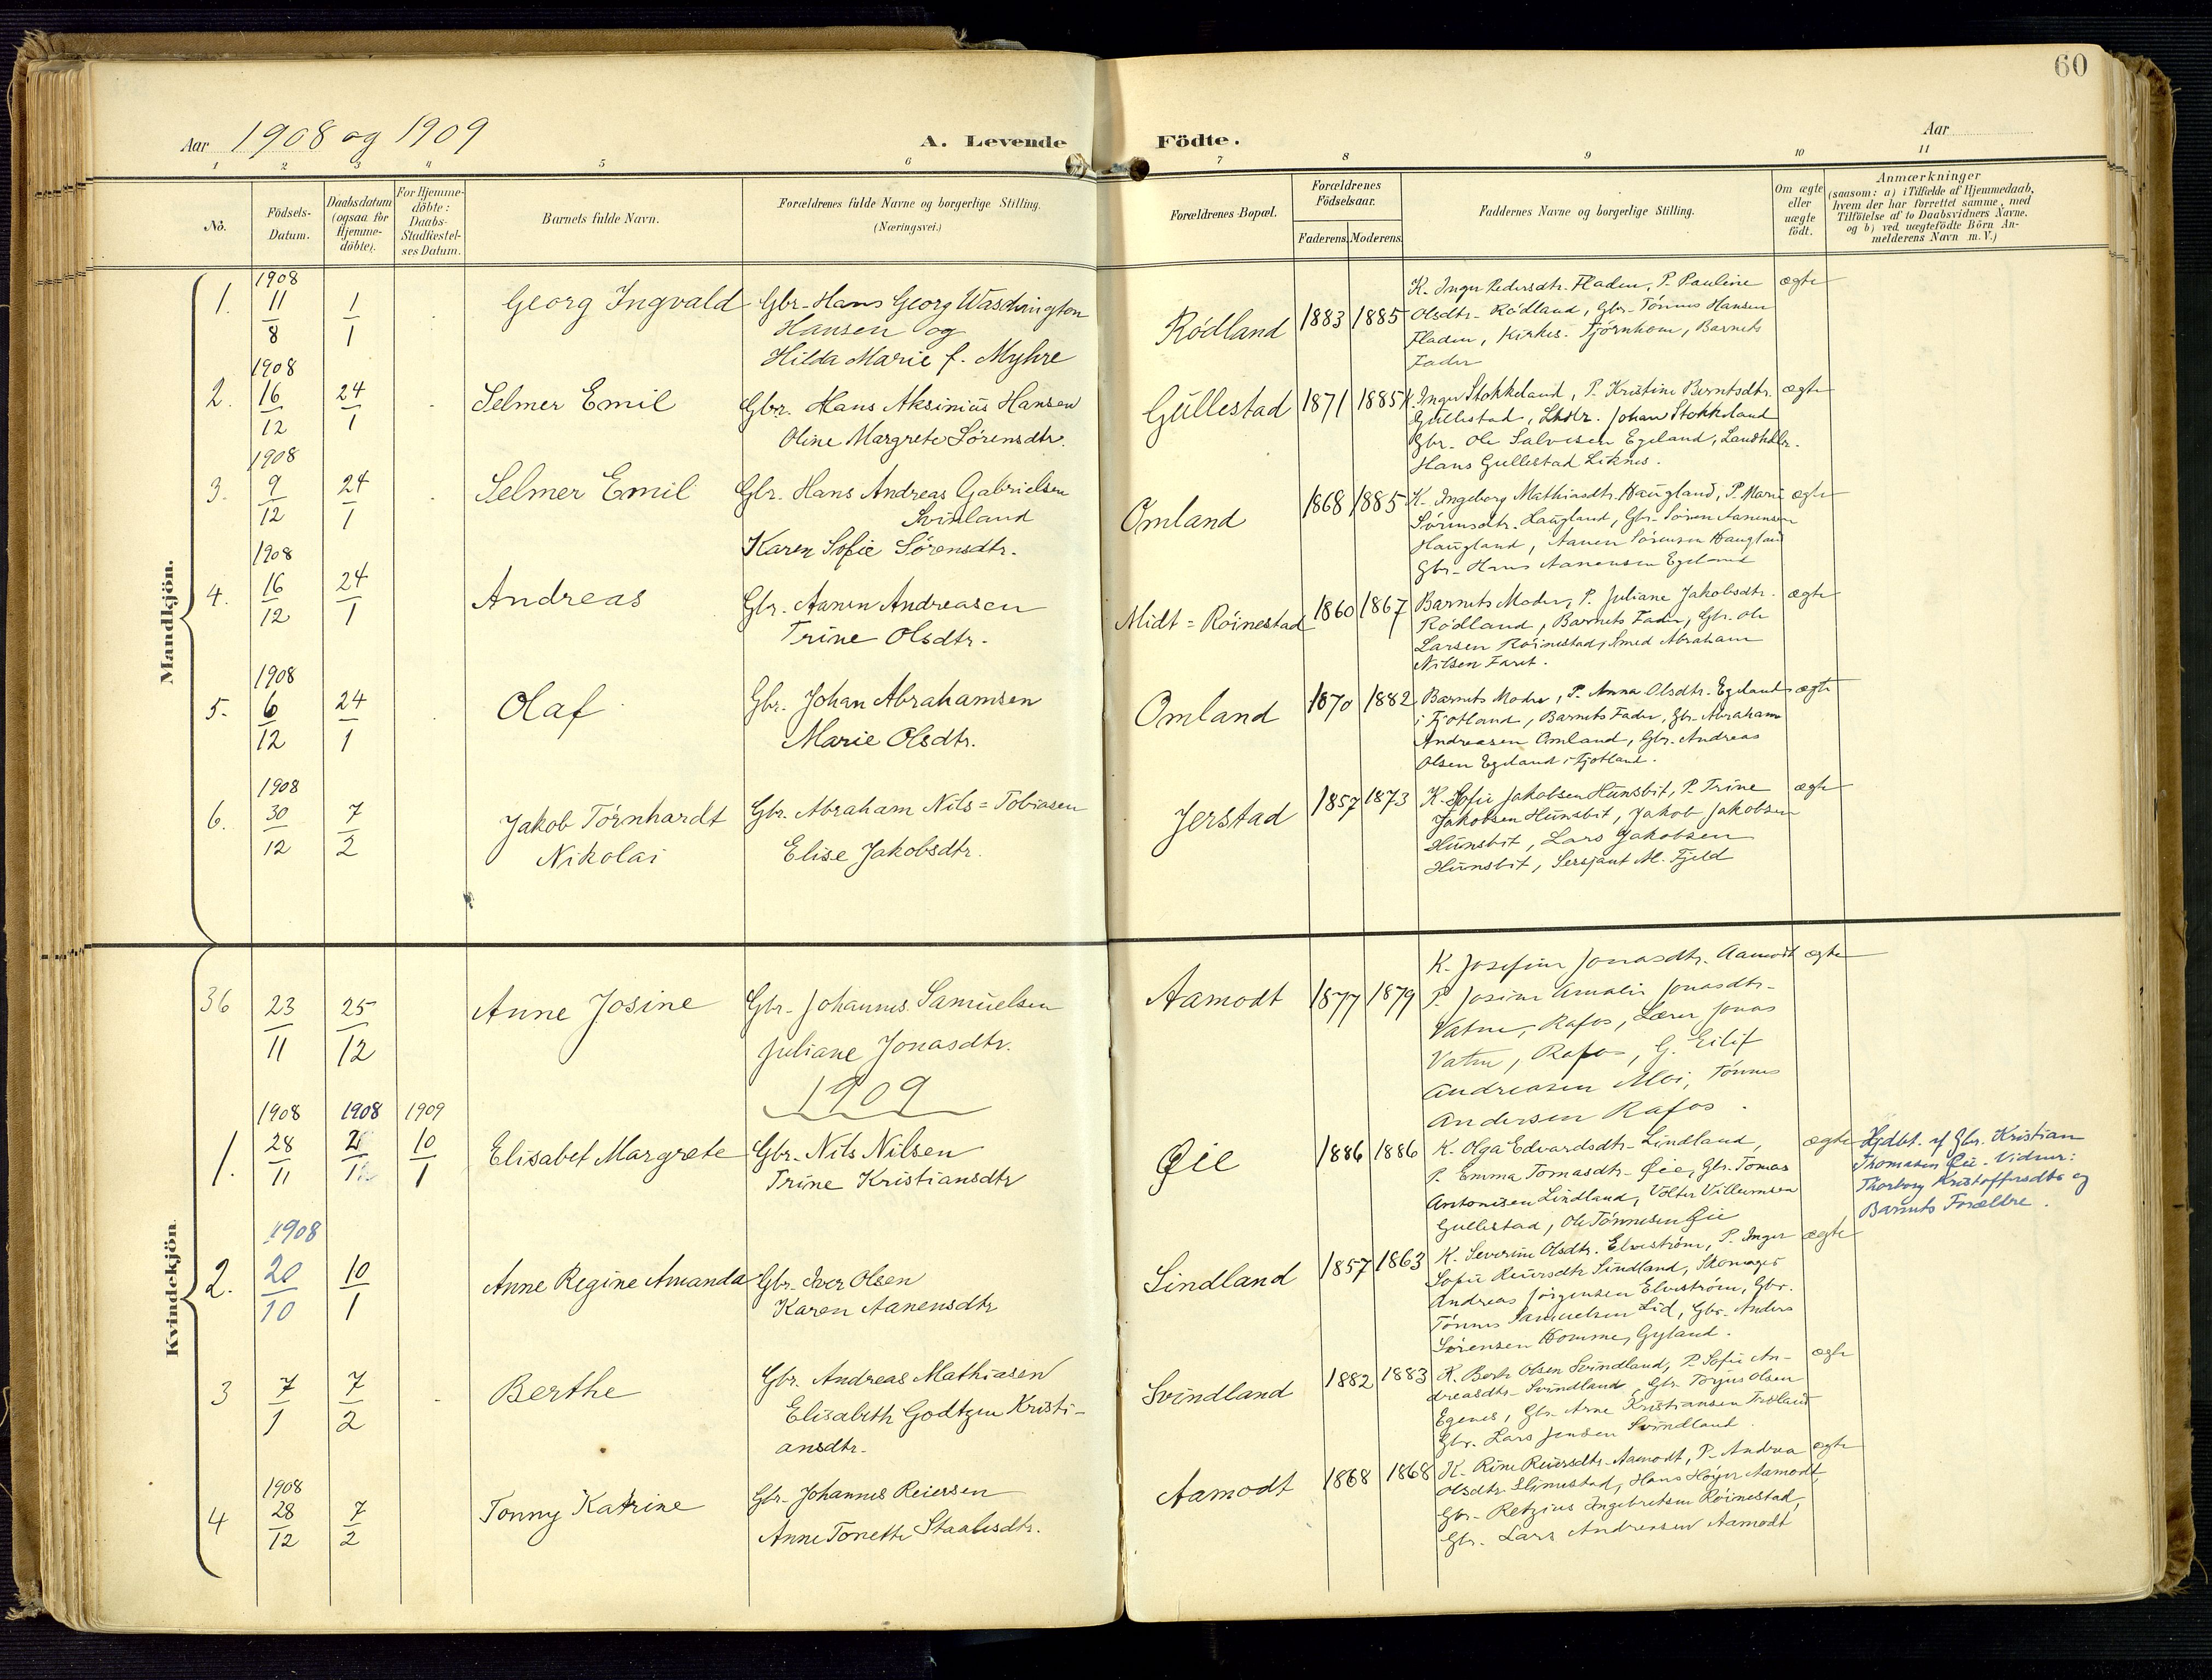 60
Aar 1908 og 1909
A. Levende Födte.
Aar
1 2 3 4 5 6 7 8 9 10 11
No.
Födsels-
Datum.
Daabsdatum
(ogsaa for
Hjemme-
döbte).
For Hjemme-
döbte:
Daabs-
Stadfæstel-
ses Datum.
Barnets fulde Navn.
Forældrenes fulde Navne og borgerlige Stilling.
(Næringsvei.)
Forældrenes Bopæl.
Forældrenes
Födselsaar.
Faderens. Moderens.
Faddernes Navne og borgerlige Stilling.
Om ægte
eller
uægte
födt.
Anmærkninger
(saasom: a) i Tilfælde af Hjemmedaab,
hvem der har forrettet samme, med
Tilföielse af to Daabsvidners Navne.
og b) ved uægtefödte Börn An-
melderens Navn m. V.)
Mandkjön.
1. 1908 11/8 1/1 Georg Ingvald
Gbr. Hans Georg Waschington
Hansen og
Hilda Marie f. Myhre
Rödland 1883 1885
K. Inger Pedersdtr. Fladen, P. Pauline
Olsdtr. Rödland, Gbr. Tönnes Hansen
Fladen, Kirkes. Tjörnhom, Barnets
Fader
ægte
2. 1908 16/12 24/1 Selmer Emil
Gbr. Hans Aksinius Hansen
Oline Margrete Sörensdtr.
Gullestad 1871 1885
K. Inger Stokkeland, P. Kristine Berntsdtr.
Gullestad, Lhdlr. Johan Stokkeland
Gbr. Ole Salvesen Egeland, Landhdlr.
Hans Gullestad Liknes.
ægte
3. 1908 9/12 24/1 Selmer Emil
Gbr. Hans Andreas Gabrielsen
Svinland
Karen Sofie Sörensdtr.
Omland 1868 1885
K. Ingeborg Mathiasdtr. Haugland, P. Marie
Sörensdtr. Haugland, Gbr. Sören Aanensen
Haugland, Aanen Sörensen Haugland
Gbr. Hans Aanensen Egeland
ægte
4. 1908 16/12 24/1 Andreas
Gbr. Aanen Andreasen
Trine Olsdtr.
Midt=Röinestad 1860 1867
Barnets Moder, P. Juliane Jakobsdtr.
Rödland, Barnets Fader, Gbr. Ole
Larsen Röinestad, Smed Abraham
Nilsen Faret.
ægte
5. 1908 6/12 24/1 Olaf
Gbr. Johan Abrahamsen
Marie Olsdtr.
Omland 1870 1882
Barnets Moder, P. Anna Olsdtr. Egeland
i Fjotland, Barnets Fader, Gbr. Abraham
Andreasen Omland, Gbr. Andreas
Olsen Egeland i Fjotland.
ægte
6. 1908 30/12 7/2 Jakob Törnhardt
Nikolai
Gbr. Abraham Nils=Tobiasen
Elise Jakobsdtr.
Jerstad 1857 1873
K. Sofie Jakobsen Hunsbit, P. Trine
Jakobsen Hunsbit, Jakob Jakobsen
Hunsbit, Lars Jakobsen
Hunsbit, Sersjant M. Fjeld
ægte
Kvindekjön.
36 23/11 25/12 Anne Josine
Gbr. Johannes Samuelsen
Juliane Jonasdtr.
Aamodt 1877 1879
K. Josefine Jonasdtr. Aamodt
P. Josine Amalie Jonasdtr.
Vatne, Rafos, Lærer Jonas
Vatne, Rafos, G. Eilif
Andreasen Moi, Tönnes
Andersen Rafos.
ægte
1909
1. 1908 28/11 1908 1909 10/1 Elisabet Margrete
Gbr. Nils Nilsen
Trine Kristiansdtr
Øie 1886 1886
K. Olga Edvardsdtr. Lindland,
P. Emma Tomasdtr. Øie, Gbr. Tomas
Antonisen Lindland, Volter Villumsen
Gullestad, Ole Tönnesen Øie
ægte
Hjdbt. af Gbr. Kristian
Thomasen Øie. Vidner:
Thorborg Kristoffersdtr og
Barnets Forældre.
2. 1908 20/10 10/1 Anne Regine Amanda
Gbr. Iver Olsen
Karen Aanensdtr
Lindland 1857 1863
K. Severine Olsdtr. Elveström, P. Inger
Sofie Reiersdtr Lindland, Skomager
Andreas Jörgensen Elveström, Gbr.
Tönnes Samuelsen Lid, Gbr. Anders
Sörensen Homme, Gyland.
ægte
3 7/1 7/2 Berthe
Gbr. Andreas Mathiasen
Elisabeth Godtzen Kristi-
ansdtr.
Svindland 1882 1883
K. Berte Olsen Svindland, P. Sofie An-
dreasdtr. Svindland, Gbr. Torjus Olsen
Egenes, Gbr. Arne Kristiansen
Gbr. Lars Jensen Svindland.
ægte
4 1908 28/12 7/2 Tonny Katrine
Gbr. Johannes Reiersen
Anne Tonette Staalesdtr.
Aamodt 1868 1868
K. Rine Reiersdtr. Aamodt, P. Andrea
Olsdtr. Slimestad, Hans Höyer Aamodt,
Gbr. Retzius Ingebretsen Röinestad,
Gbr. Lars Andreasen Aamodt
ægte